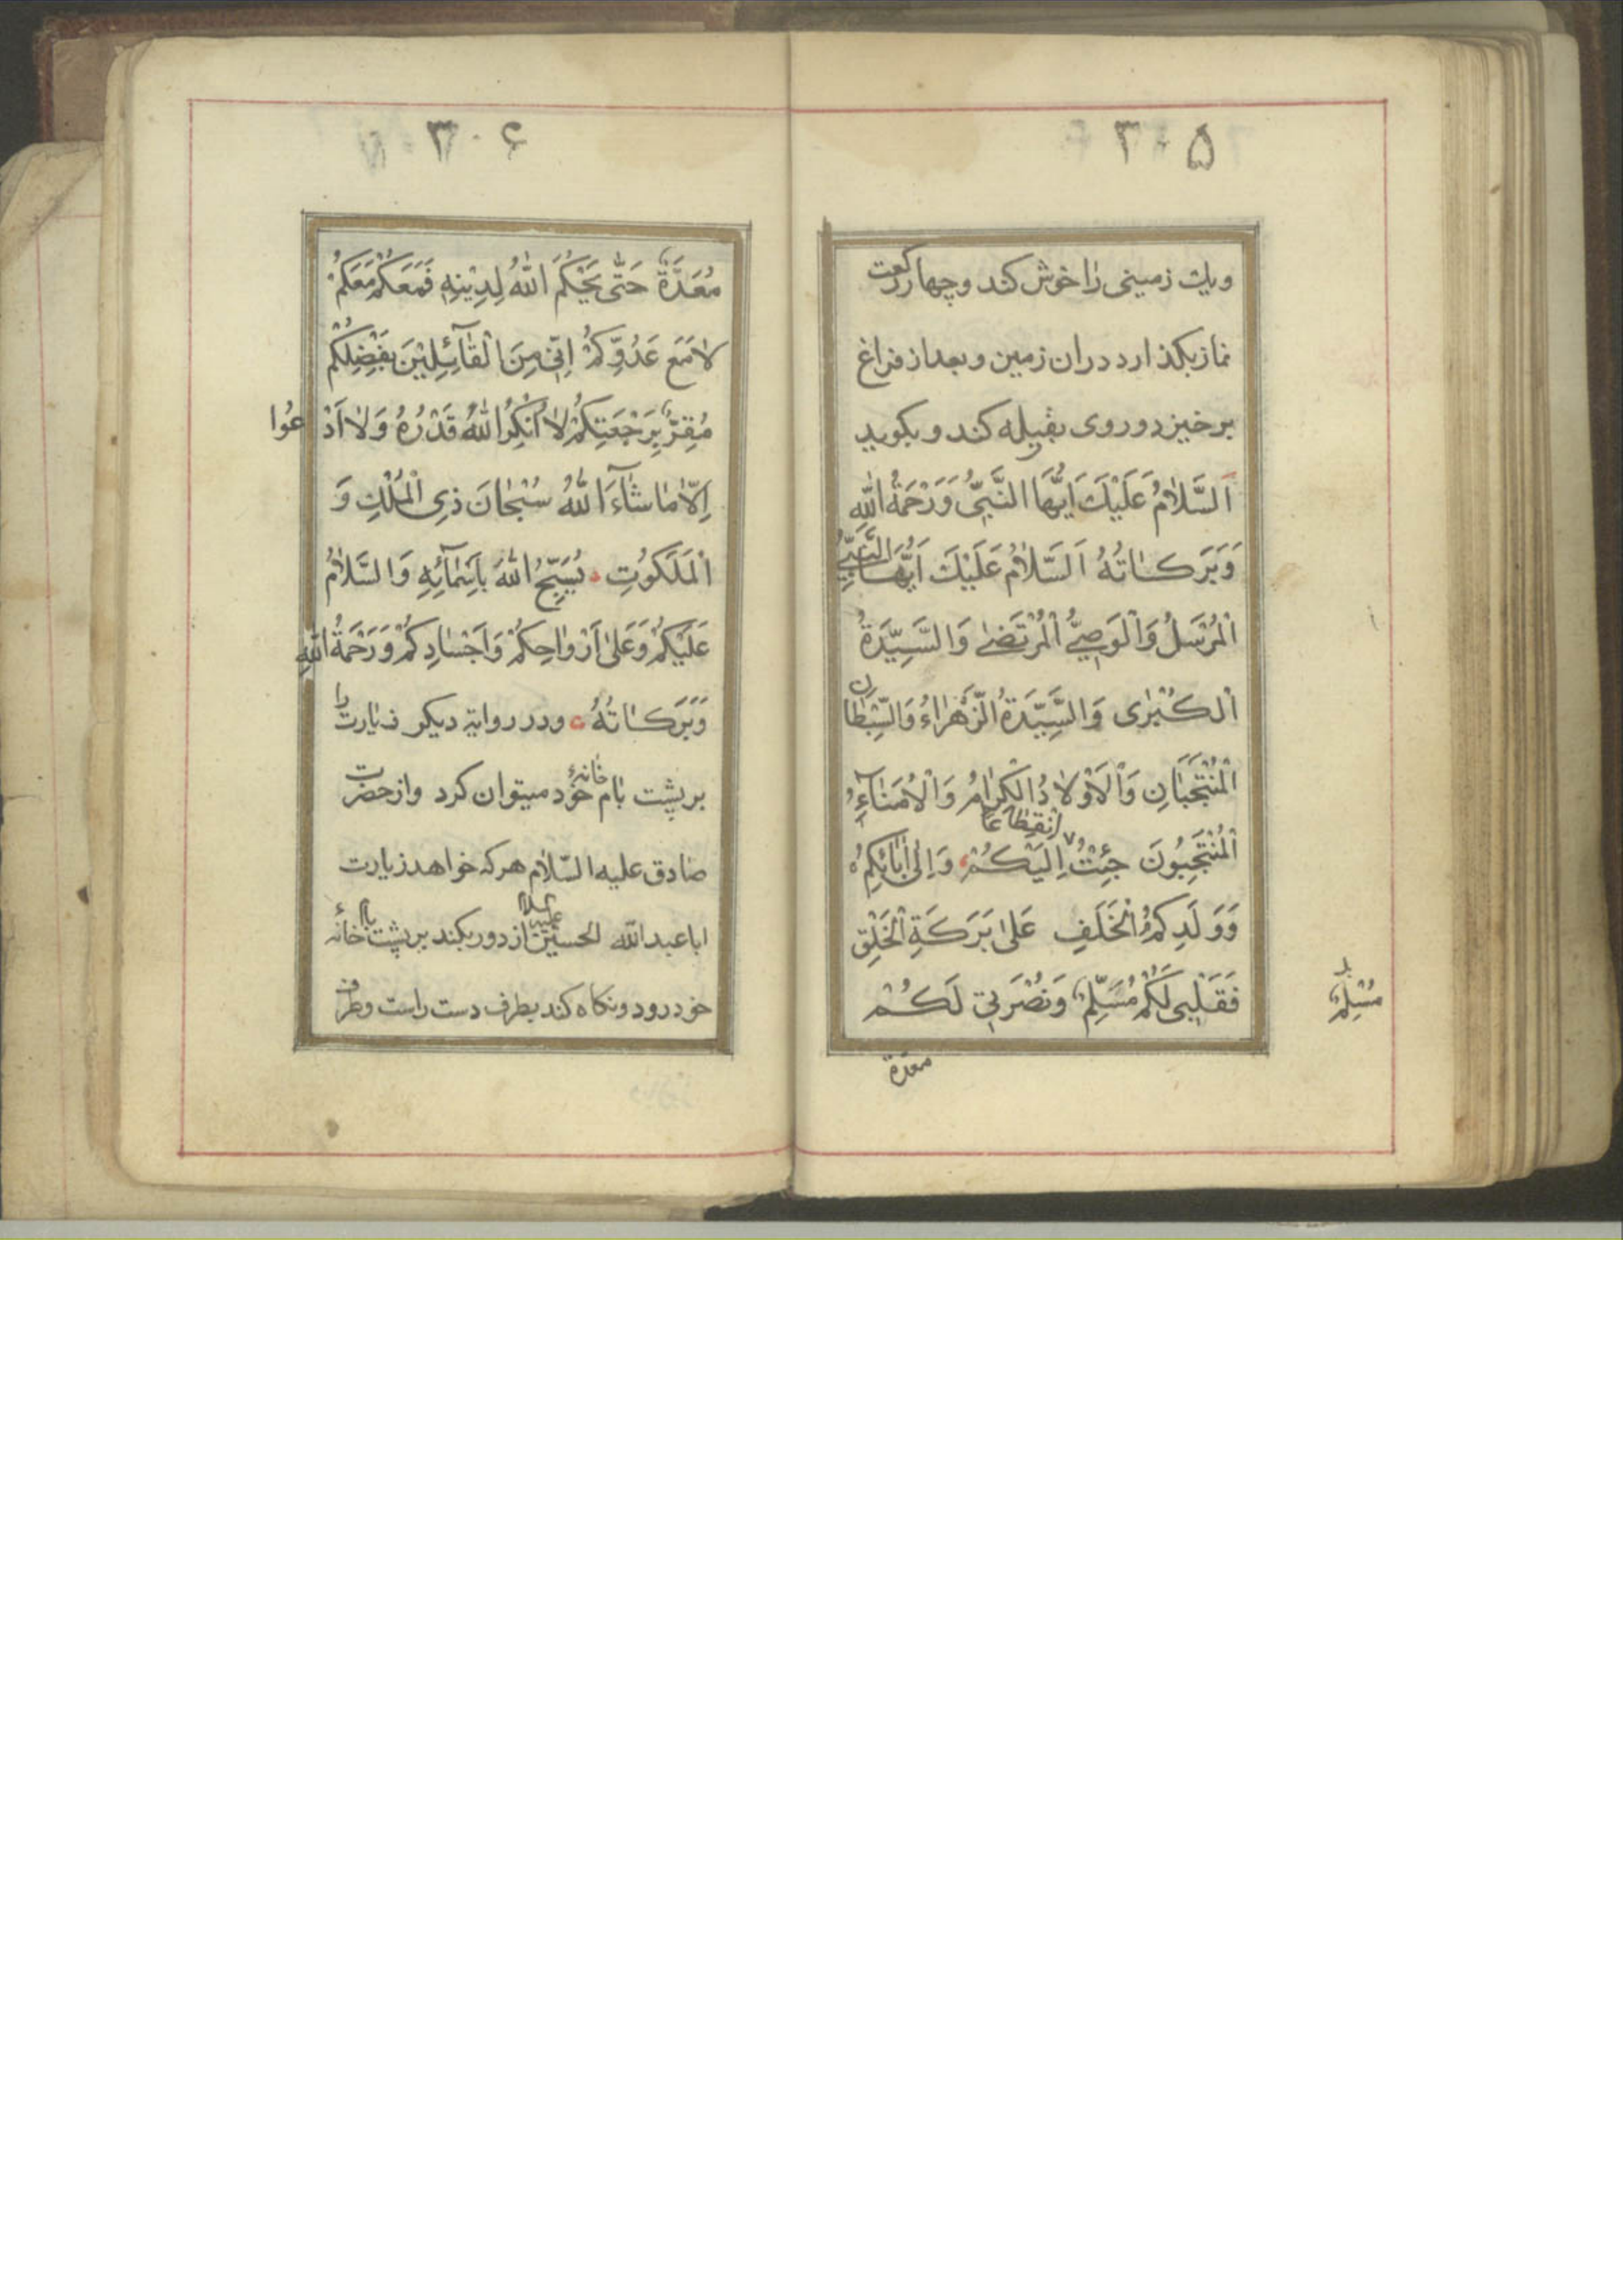 ۳۰۵
ویك زمینی را خوش کند و چهار رکعت
نماز بکذارد دران زمین و بعد از فراغ
برخیزد و روی بقبله کند و بکوید
اَلسَّلامُ عَلَيْكَ اَيُّهَا النَّبِيُّ وَرَحْمَةُ اللّٰهِ
وَبَرَكاتُهُ اَلسَّلامُ عَلَيْكَ اَيُّهَا النَّبِيُّ
الْمُرْسَلُ وَالْوَصِيُّ الْمُرْتَضىٰ وَالسَّيِّدَةُ
الْكُبْرى وَالسَّيِّدَةُ الزَّهْراءُ وَالسِّبْطانِ
الْمُنْتَجَبانِ وَالْاَوْلادُ الْكِرامُ وَالْاُمَناءُ
الْمُنْتَجَبُونَ جِئْتُ اِنْقِطاعاً اِلَيْكُمْ وَاِلىٰ اٰبائِكُمْ
وَوَلَدِكُمُ الْخَلَفِ عَلىٰ بَرَكَةِ الْخَلْقِ
فَقَلْبِي لَكُمْ مُسَلِّمٌ وَنُصْرَتِي لَكُمْ
مُسْلِمٌ
معدة
۳۰۶
مُعَدَّةٌ حَتّىٰ يَحْكُمَ اللّٰهُ لِدِيْنِهِ فَمَعَكُمْ مَعَكُمْ
لا مَعَ عَدُوِّكُمْ اِنّي مِنَ الْقآئِلِيْنَ بِفَضْلِكُمْ
مُقِرٌّ بِرَجْعَتِكُمْ لا اُنْكِرُ اللّٰهَ قُدْرَةً وَلا اَدْعُوا
اِلّا ما شآءَ اللّٰهُ سُبْحانَ ذِي الْمُلْكِ وَ
الْمَلَكُوتِ يُسَبِّحُ اللّٰهَ بِاَسْمآئِهِ وَالسَّلامُ
عَلَيْكُمْ وَعَلىٰ اَرْواحِكُمْ وَاَجْسادِكُمْ وَرَحْمَةُ اللّٰهِ
وَبَرَكاتُهُ ودر روایة دیکر زیارت را
بر پشت بام خانهٔ خود میتوان کرد واز حضرت
صادق علیه السّلام هرکه خواهد زیارت
ابا عبد اللّه الحسین علیه السلام از دور بکند بر پشت بام خانهٔ
خود رود و نکاه کند بطرف دست راست وطرف